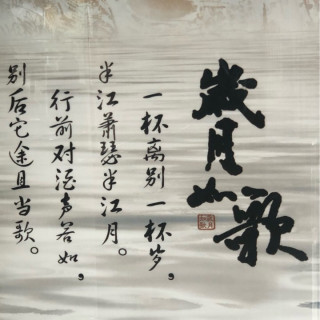 歲月如歌
一杯离别一杯岁，
半江萧瑟半江月。
行前对酒声若如，
别后它途且当歌。